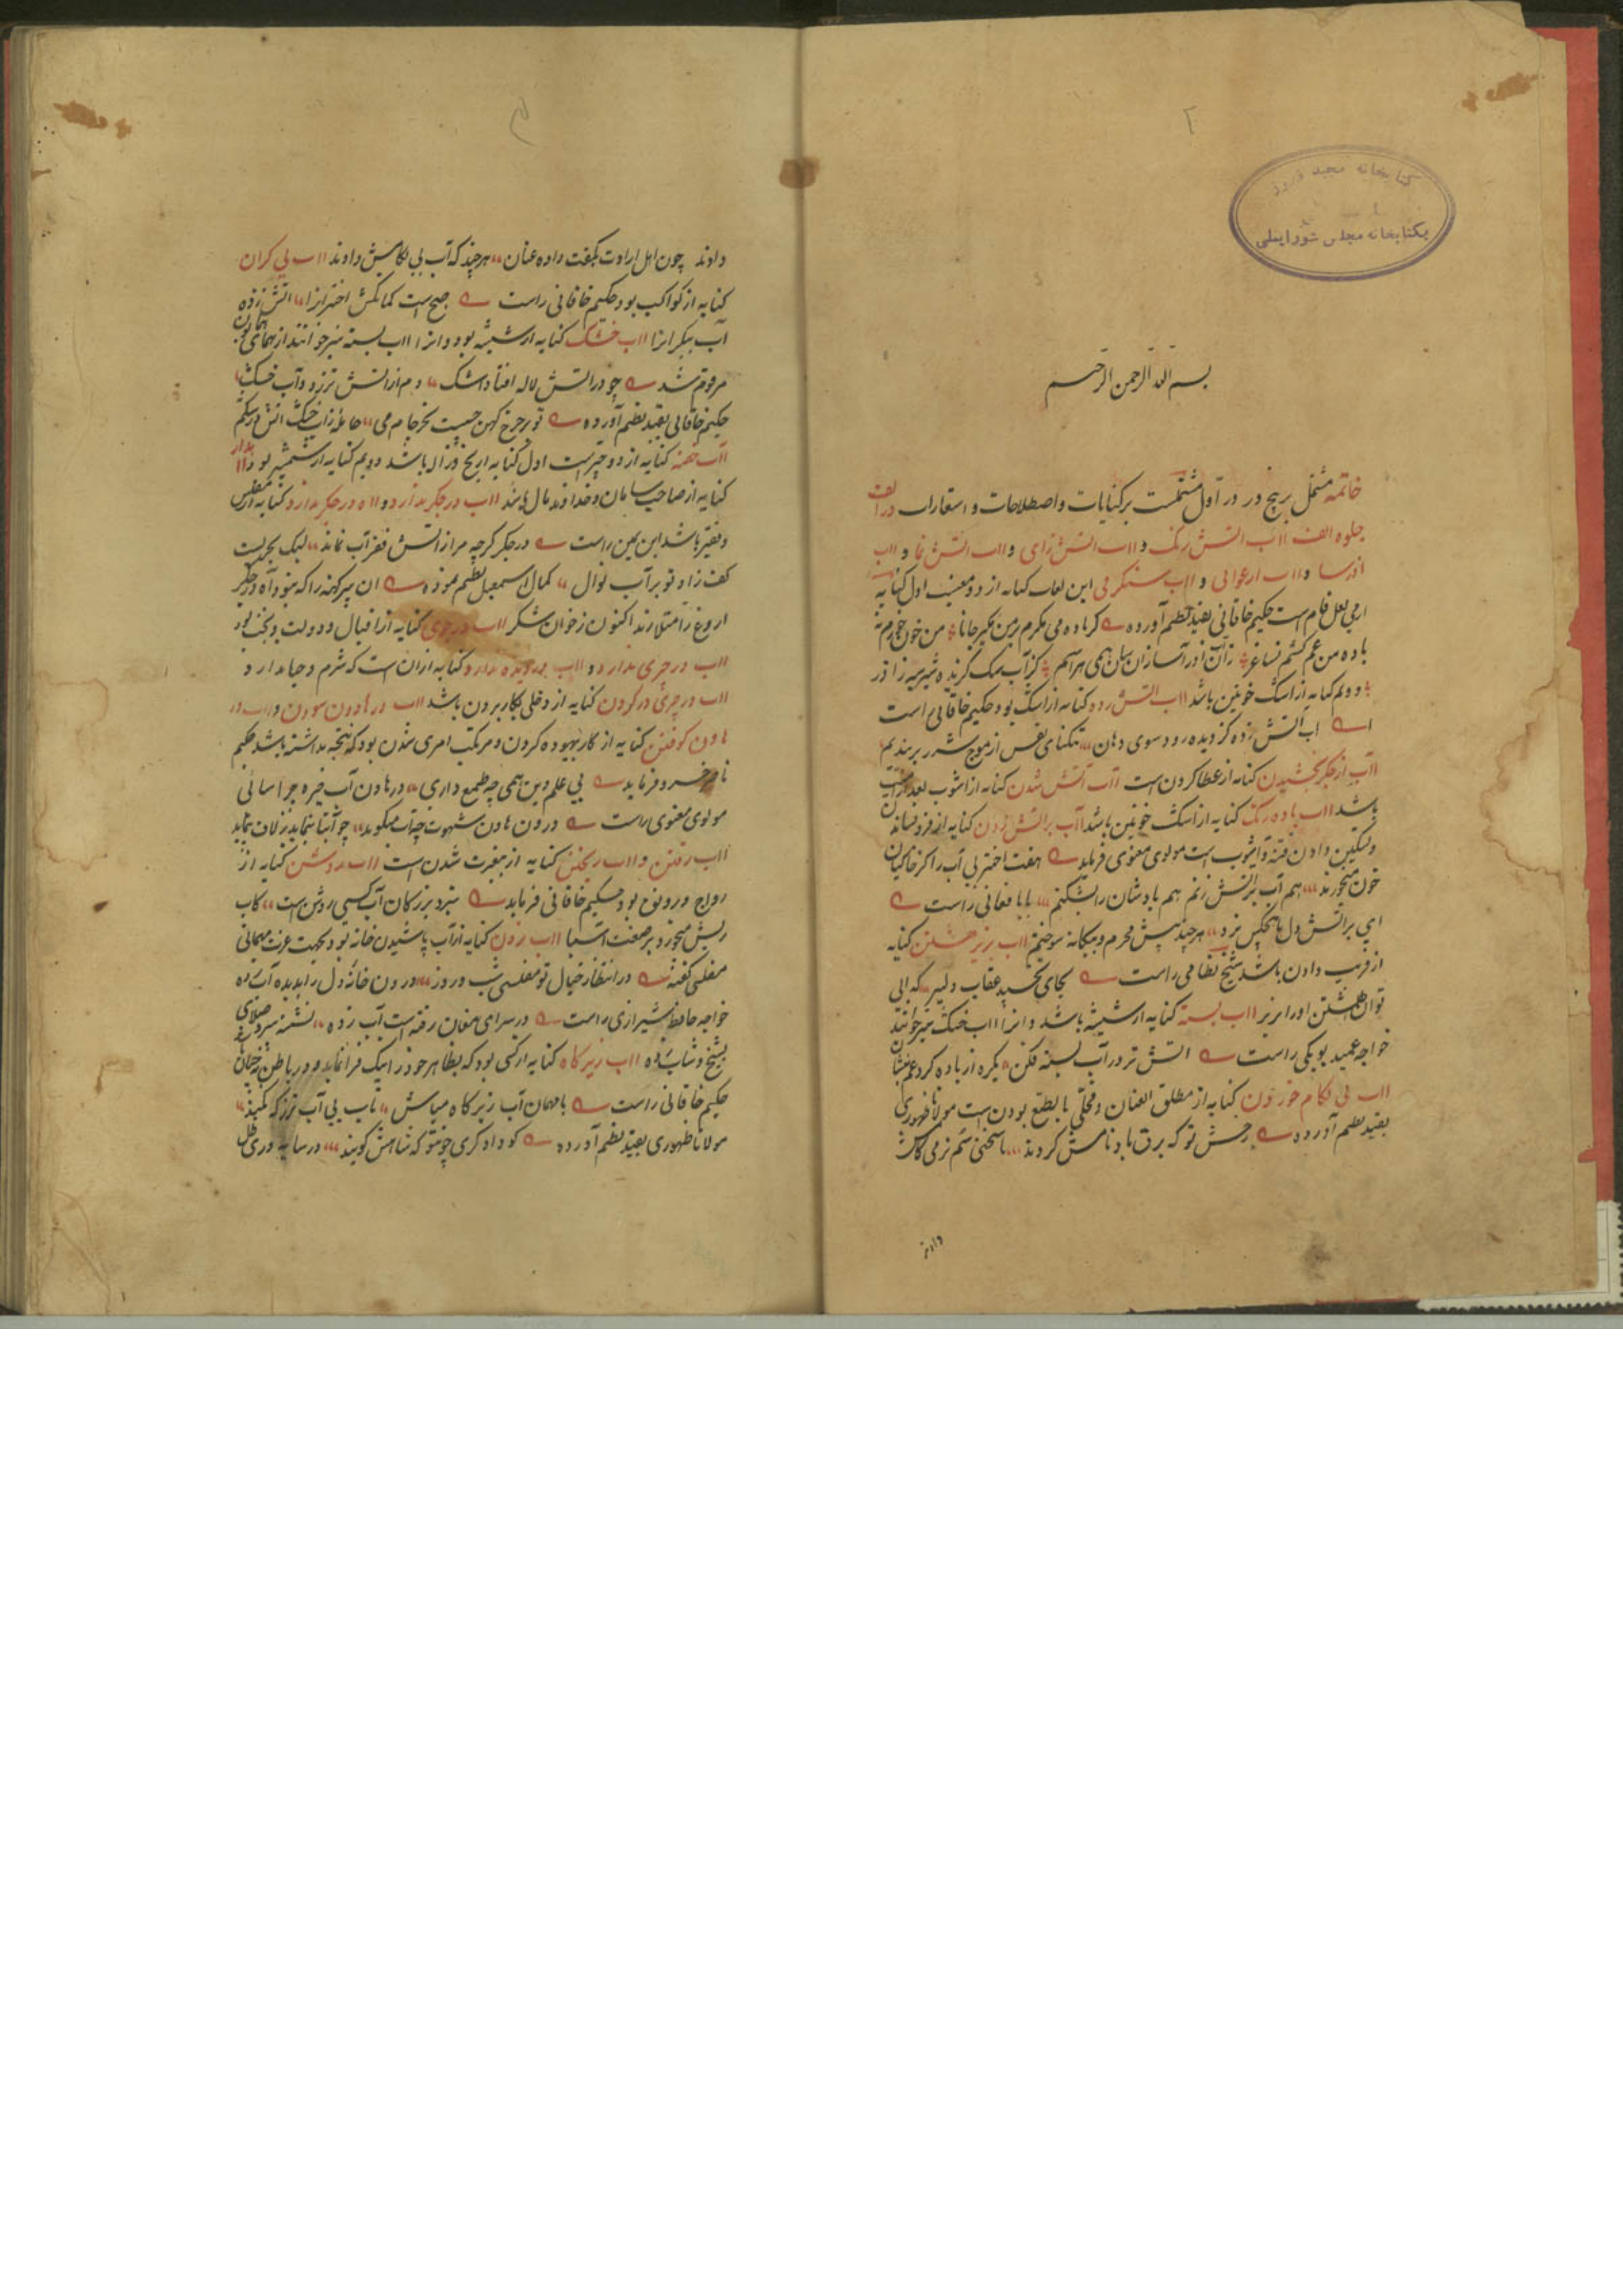 ۲
کتابخانه مجید فیروز
بکتابخانه مجلس شورایملی
بسم الله الرحمن الرحیم
خاتمه مشتمل بر پنج در در اول مشتملست بر کنایات و اصطلاحات و استعارات در الف
جلوه الف آب آتش رنگ و آب آتش زای و آب آتش نما و آب
آذرسا و آب ارغوانی و آب شنگرفی این لغات کنایه از دو معنیست اول کنایه
از می لعل فام است حکیم خاقانی بقید نظم آورده گر باده می نگرم بر من مگیر جانا من خون خورم نه
باده من غم کشم نه ساغر زان آذر آسا زان سان همی هراسم کز آب سگ گزیده شیر سیه ز آذر
دویم کنایه از اشک خونین باشد آب آتش زده کنایه از اشک بود حکیم خاقانی راست
آب آتش زده کز دیده رود سوی دهان تنگنای نفس از موج شرر بربندیم
آب از جگر بخشیدن کنایه از عطا کردن است آب آتش شدن کنایه از آشوب بعد از امنیت
باشد آب باده رنگ کنایه از اشک خونین باشد آب بر آتش زدن کنایه از فرو نشاندن
و تسکین دادن فتنه و آشوب است مولوی معنوی فرماید هفت اختر بی آب را کز خاکیان
خون میخورند هم آب بر آتش زنم هم بادشان را بشکنم بابا فغانی راست
آبی بر آتش دل ما هیچکس نزد هر چند پیش محرم و بیگانه سوختیم آب بریز هشتن کنایه
از فریب دادن باشد شیخ نظامی راست بجای نخسپد عقاب دلیر که آبی
توان هشتن او را بزیر آب بسته کنایه از شیشه باشد و آنرا آب خشک نیز خوانند
خواجه عمید لویکی راست آتش تر در آب بسته فکن
آب بی لگام خوردن کنایه از مطلق العنان و مخلی بالطبع بودن است مولانا ظهوری
بقید نظم آورده رخش تو که برق باد نامش کردند تا سختی سم نرمی گامش
دادند
دادند چون اهل ارادت بکفت داده عنان هر چند که آب بی لگامش دادند آب بی کران
کنایه از کواکب بود حکیم خاقانی راست صبح است کمانکش اختران را آتش زده
آب پیکران را آب خشک کنایه از شیشه بود و آنرا آب بسته نیز خوانند
مرقوم شد چو در آتش لاله افتاد اشک دم از آتش تر زد و آب خشک
حکیم خاقانی بقید نظم آورده تو برجی کهن چیست بجز جام می حامله ز آب خشک آتش تر در شکم
آب خفته کنایه از دو چیز است اول کنایه از یخ و ژاله باشد دویم کنایه از شمشیر بود
کنایه از صاحب سامان و خداوند مال باشد آب در جگر ندارد و آه در جگر ندارد کنایه از مفلس
و فقیر باشد ابن یمین راست در جگر گرچه مرا ز آتش فقر آب نماند لیک بحریست
کف راد تو پر آب نوال کمال اسمعیل نظم نموده آن پیر کهنه را که نبود آه در جگر
آروغ ز امتلا زند اکنون ز خوان شکر آب در جوی کنایه از اقبال و دولت و بخت بود
آب در جوی ندارد و آب در دیده ندارد کنایه از آن است که شرم و حیا ندارد
آب در جوی در کردن کنایه از دخلی بکار بردن باشد آب در هاون سودن و آب در
هاون کوفتن کنایه از کار بیهوده کردن و مرتکب امری شدن بود که نتیجه نداشته باشد حکیم
ناصر خسرو فرماید بی علم دین همی چه طمع داری در هاون آب خیره چرا سائی
مولوی معنوی راست
آب رفتن و آب ریختن کنایه از بیعزت شدن است آب روشن کنایه از
رواج و رونق بود حکیم خاقانی فرماید نبرد بزرگان آب کسی روشن است کاب
ریش میخورد بر صفت آسیا آب زدن کنایه از آب پاشیدن خانه بود بجهت عزت مهمانی
مفلسی گفته در انتظار خیال تو مفلسی شب و روز درون خانه دل را بدیده آب زده
خواجه حافظ شیرازی راست در سرای مغان رفته است آب زده نشسته پیر و صلای
بشیخ و شاب زده آب زیر کاه کنایه از کسی بود که بظاهر خود را نیک فرا نماید و در باطن نه چنان باشد
حکیم خاقانی راست با مهمان آب زیر کاه مباش
مولانا ظهوری بقید نظم آورده کو دادگری چو تو که شاهش گویند در سایه دری ظل